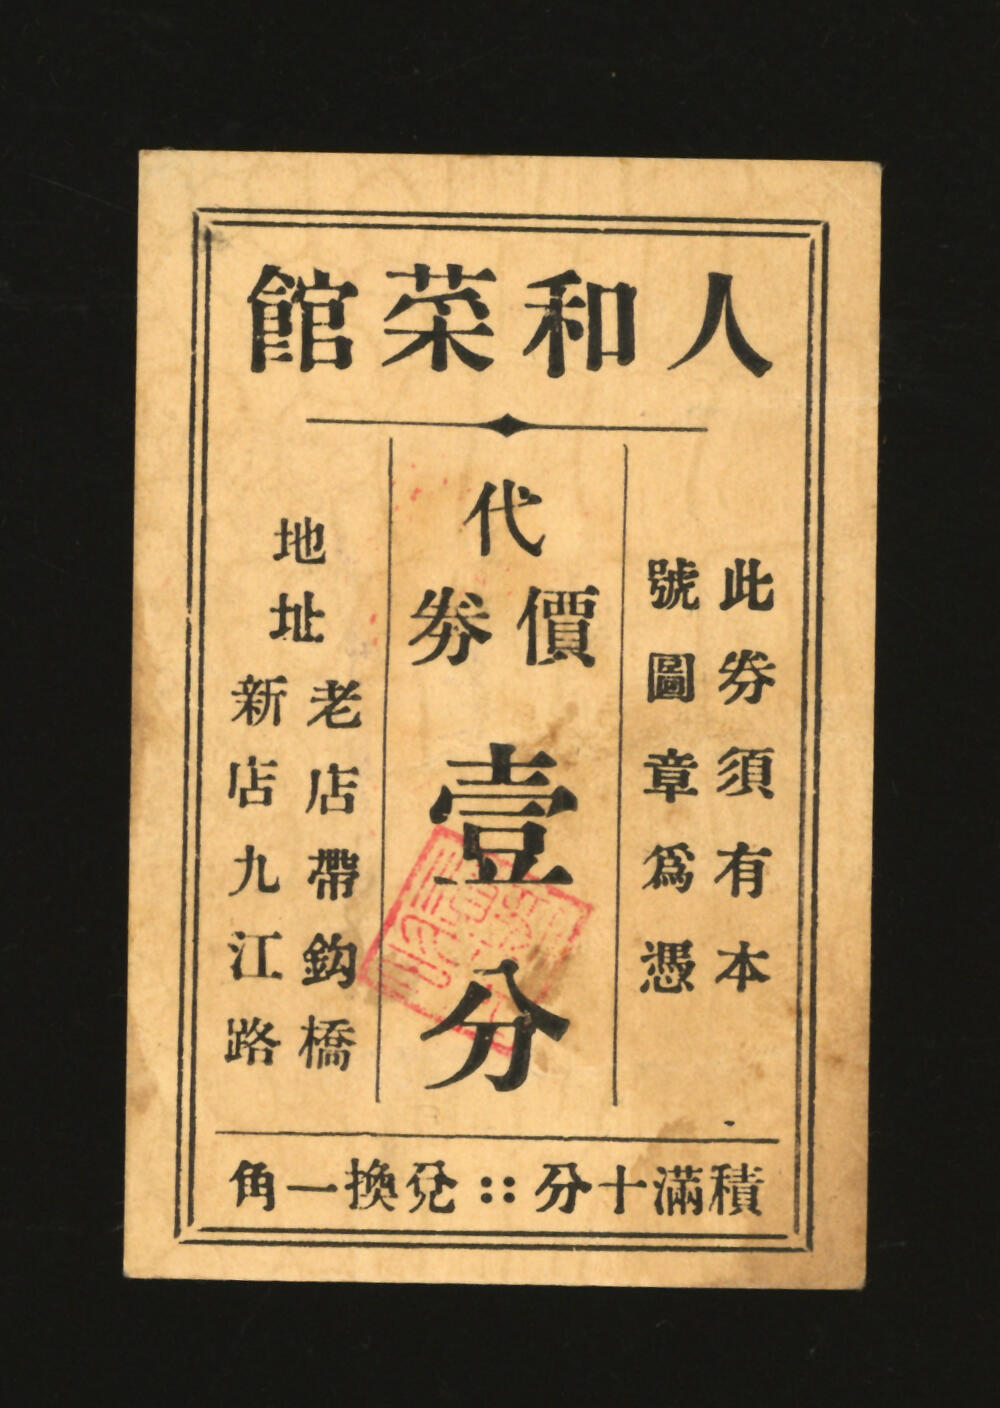 人和菜館
代價券
壹分
此券須有本
號圖章為憑
地址
老店帶鈎橋
新店九江路
積滿十分::兌換一角